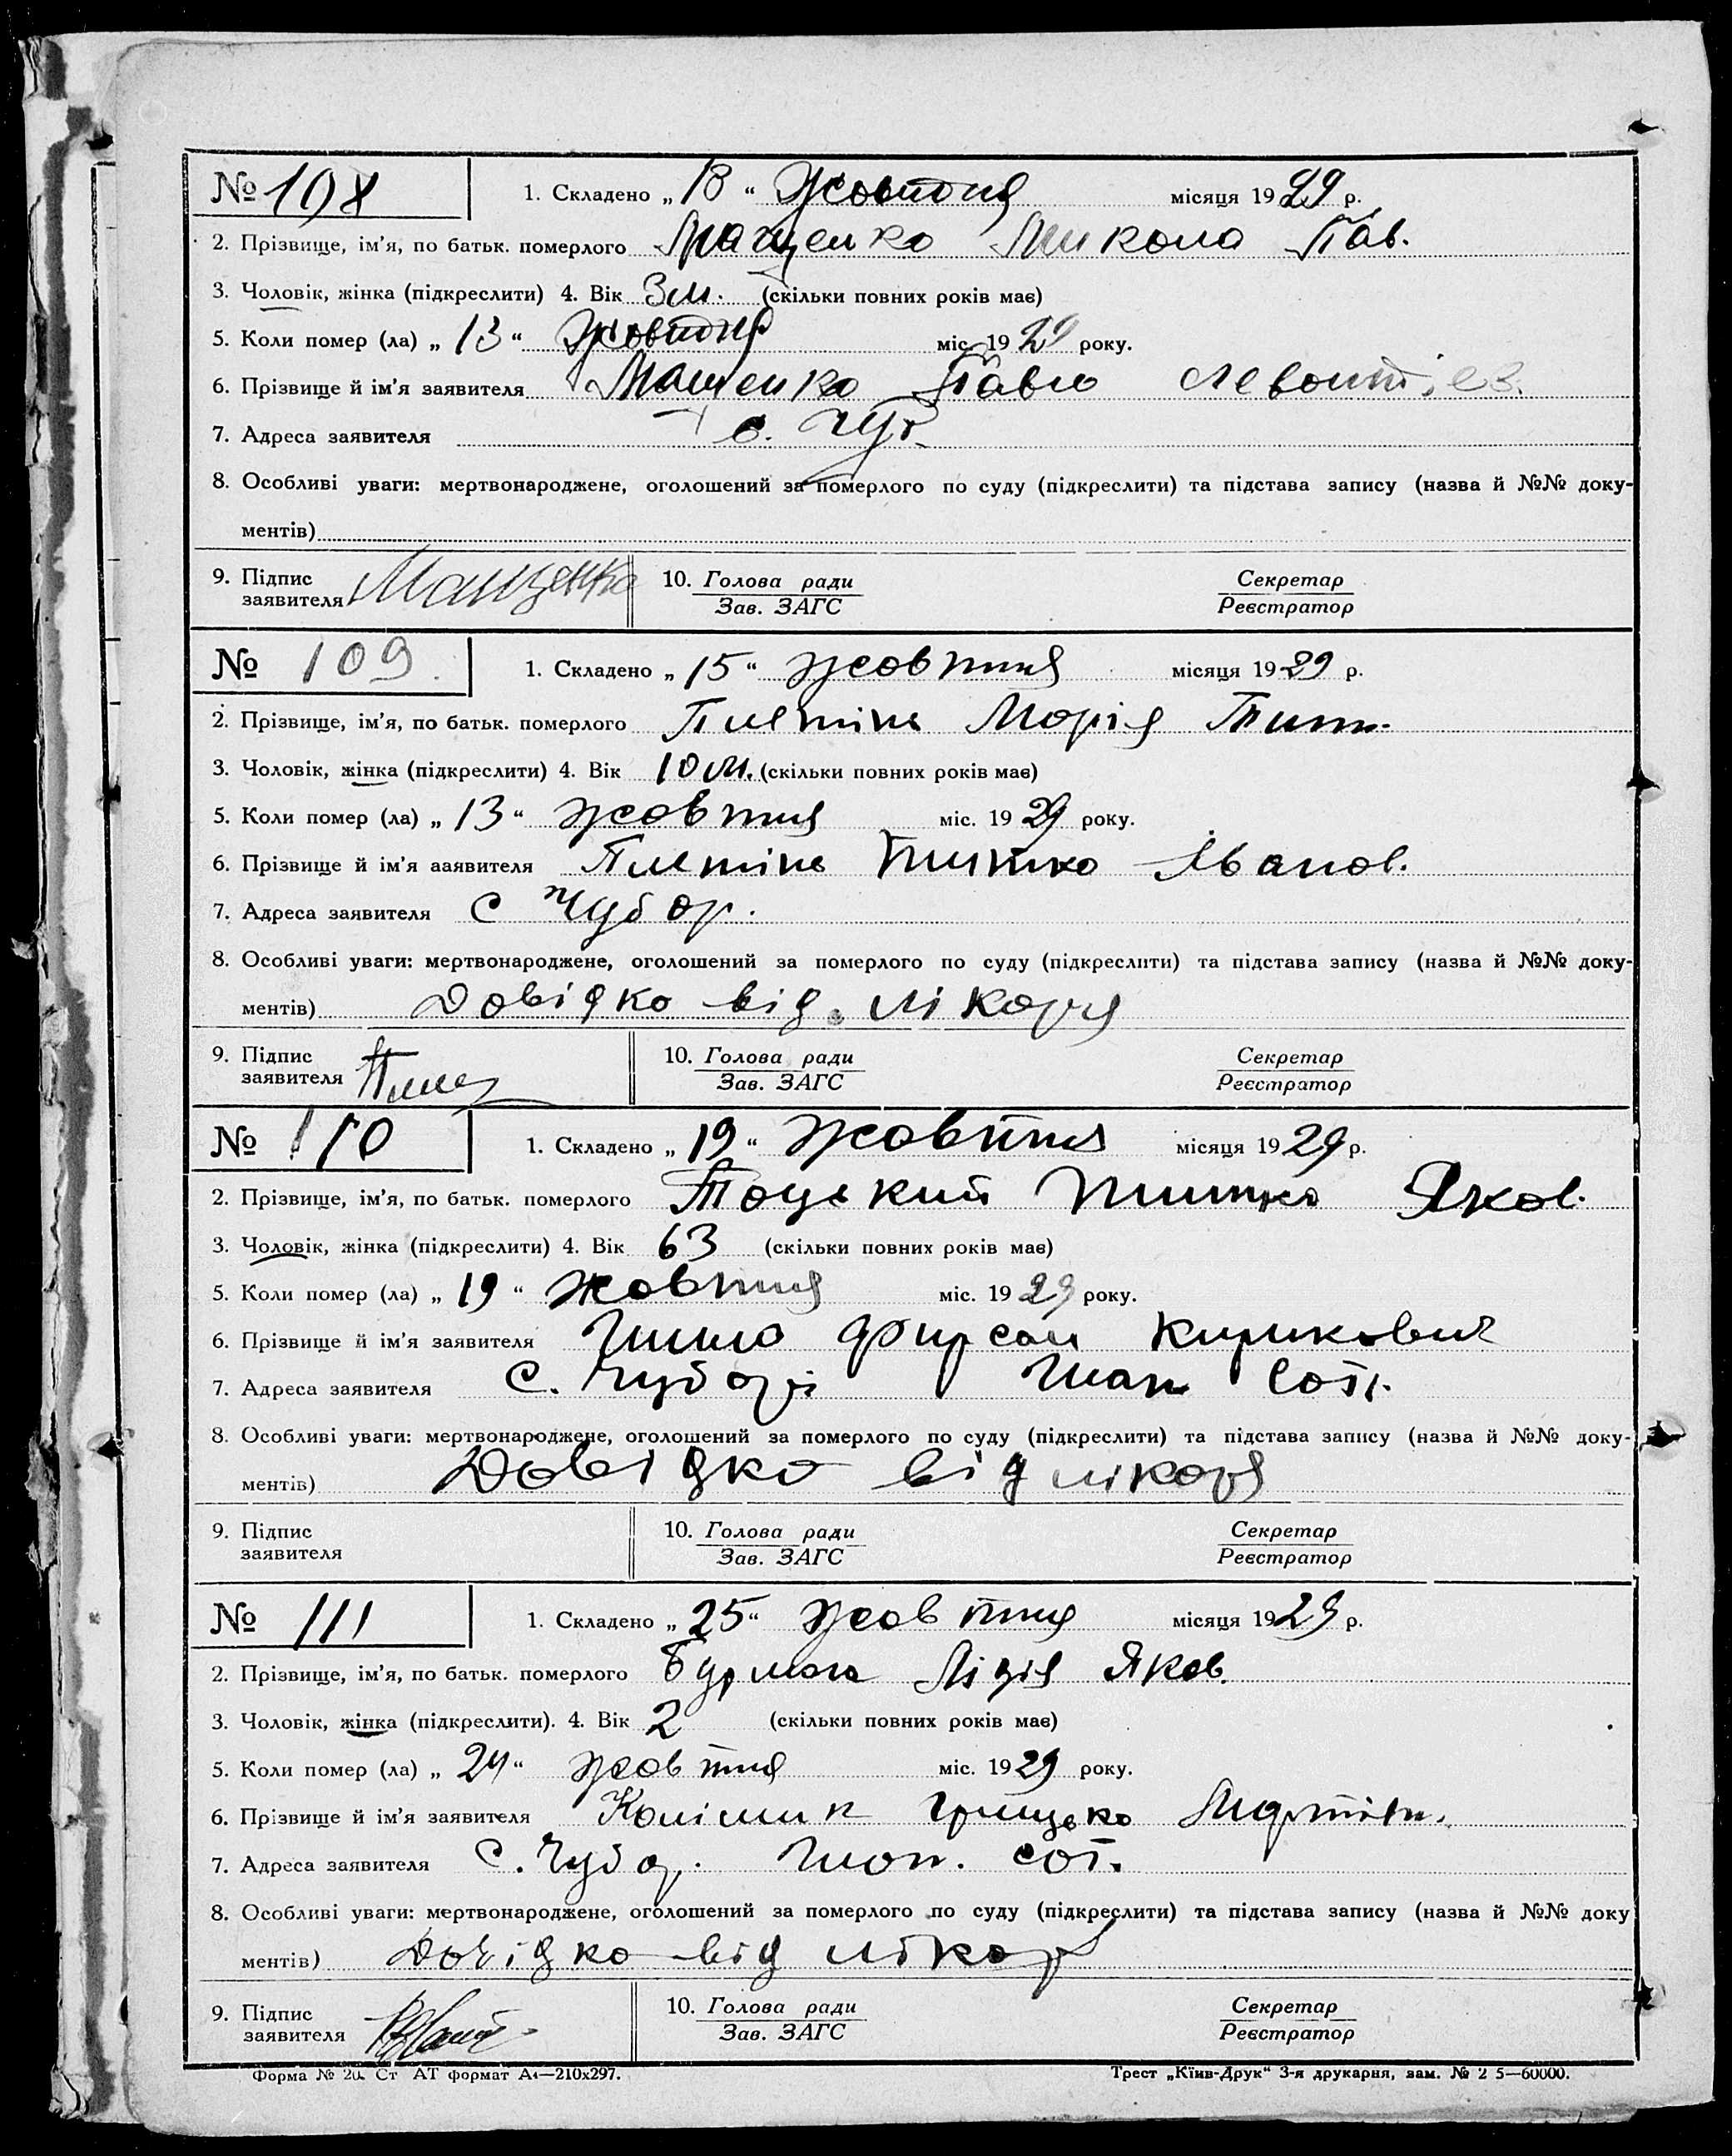 № 108 1. Складено „18“ Жовтня місяця 1929 р.
2. Прізвище, ім’я, по батьк. померлого Мащенко Микола Пав.
3. Чоловік, жінка (підкреслити) 4. Вік 3 м. (скільки повних років має)
5. Коли помер (ла) „13“ Жовтня міс. 1929 року.
6. Прізвище й ім’я заявителя Мащенко Павло Левонтіев.
7. Адреса заявителя с. Чуб.
8. Особливі уваги: мертвонароджене, оголошений за померлого по суду (підкреслити) та підстава запису (назва й №№ доку-
ментів)
9. Підпис заявителя Мащенко 10. Голова ради Секретар
Зав. ЗАГС Реєстратор
№ 109 1. Складено „15“ жовтня місяця 1929 р.
2. Прізвище, ім’я, по батьк. померлого Плетінь Марія Тит.
3. Чоловік, жінка (підкреслити) 4. Вік 10 м. (скільки повних років має)
5. Коли помер (ла) „13“ жовтня міс. 1929 року.
6. Прізвище й ім’я ааявителя Плетінь Титко Іванов.
7. Адреса заявителя с Чубар.
8. Особливі уваги: мертвонароджене, оголошений за померлого по суду (підкреслити) та підстава запису (назва й №№ доку-
ментів) Довідка від лікаря
9. Підпис заявителя 10. Голова ради Секретар
Зав. ЗАГС Реєстратор
№ 110 1. Складено „19“ жовтня місяця 1929 р.
2. Прізвище, ім’я, по батьк. померлого Тоцький Титко Яков.
3. Чоловік, жінка (підкреслити) 4. Вік 63 (скільки повних років має)
5. Коли помер (ла) „19“ жовтня міс. 1929 року.
6. Прізвище й ім’я заявителя Фирсан Кирикович
7. Адреса заявителя С. Чубарі Шап Сот.
8. Особливі уваги: мертвонароджене, оголошений за померлого по суду (підкреслити) та підстава запису (назва й №№ доку-
ментів) Довідка від лікаря
9. Підпис заявителя 10. Голова ради Секретар
Зав. ЗАГС Реєстратор
№ 111 1. Складено „25“ жовтня місяця 1929 р.
2. Прізвище, ім’я, по батьк. померлого Бурлака Лідія Яков.
3. Чоловік, жінка (підкреслити). 4. Вік 2 (скільки повних років має)
5. Коли помер (ла) „24“ жовтня міс. 1929 року.
6. Прізвище й ім’я заявителя Грицько Мартін.
7. Адреса заявителя С. Чубар. Шоп. сот.
8. Особливі уваги: мертвонароджене, оголошений за померлого по суду (підкреслити) та підстава запису (назва й №№ доку
ментів) Довідка від лікар
9. Підпис заявителя 10. Голова ради Секретар
Зав. ЗАГС Реєстратор
Форма № 20. Ст АТ формат А4—210x297. Трест „Київ-Друк“ 3-я друкарня, зам. № 2 5—60000.